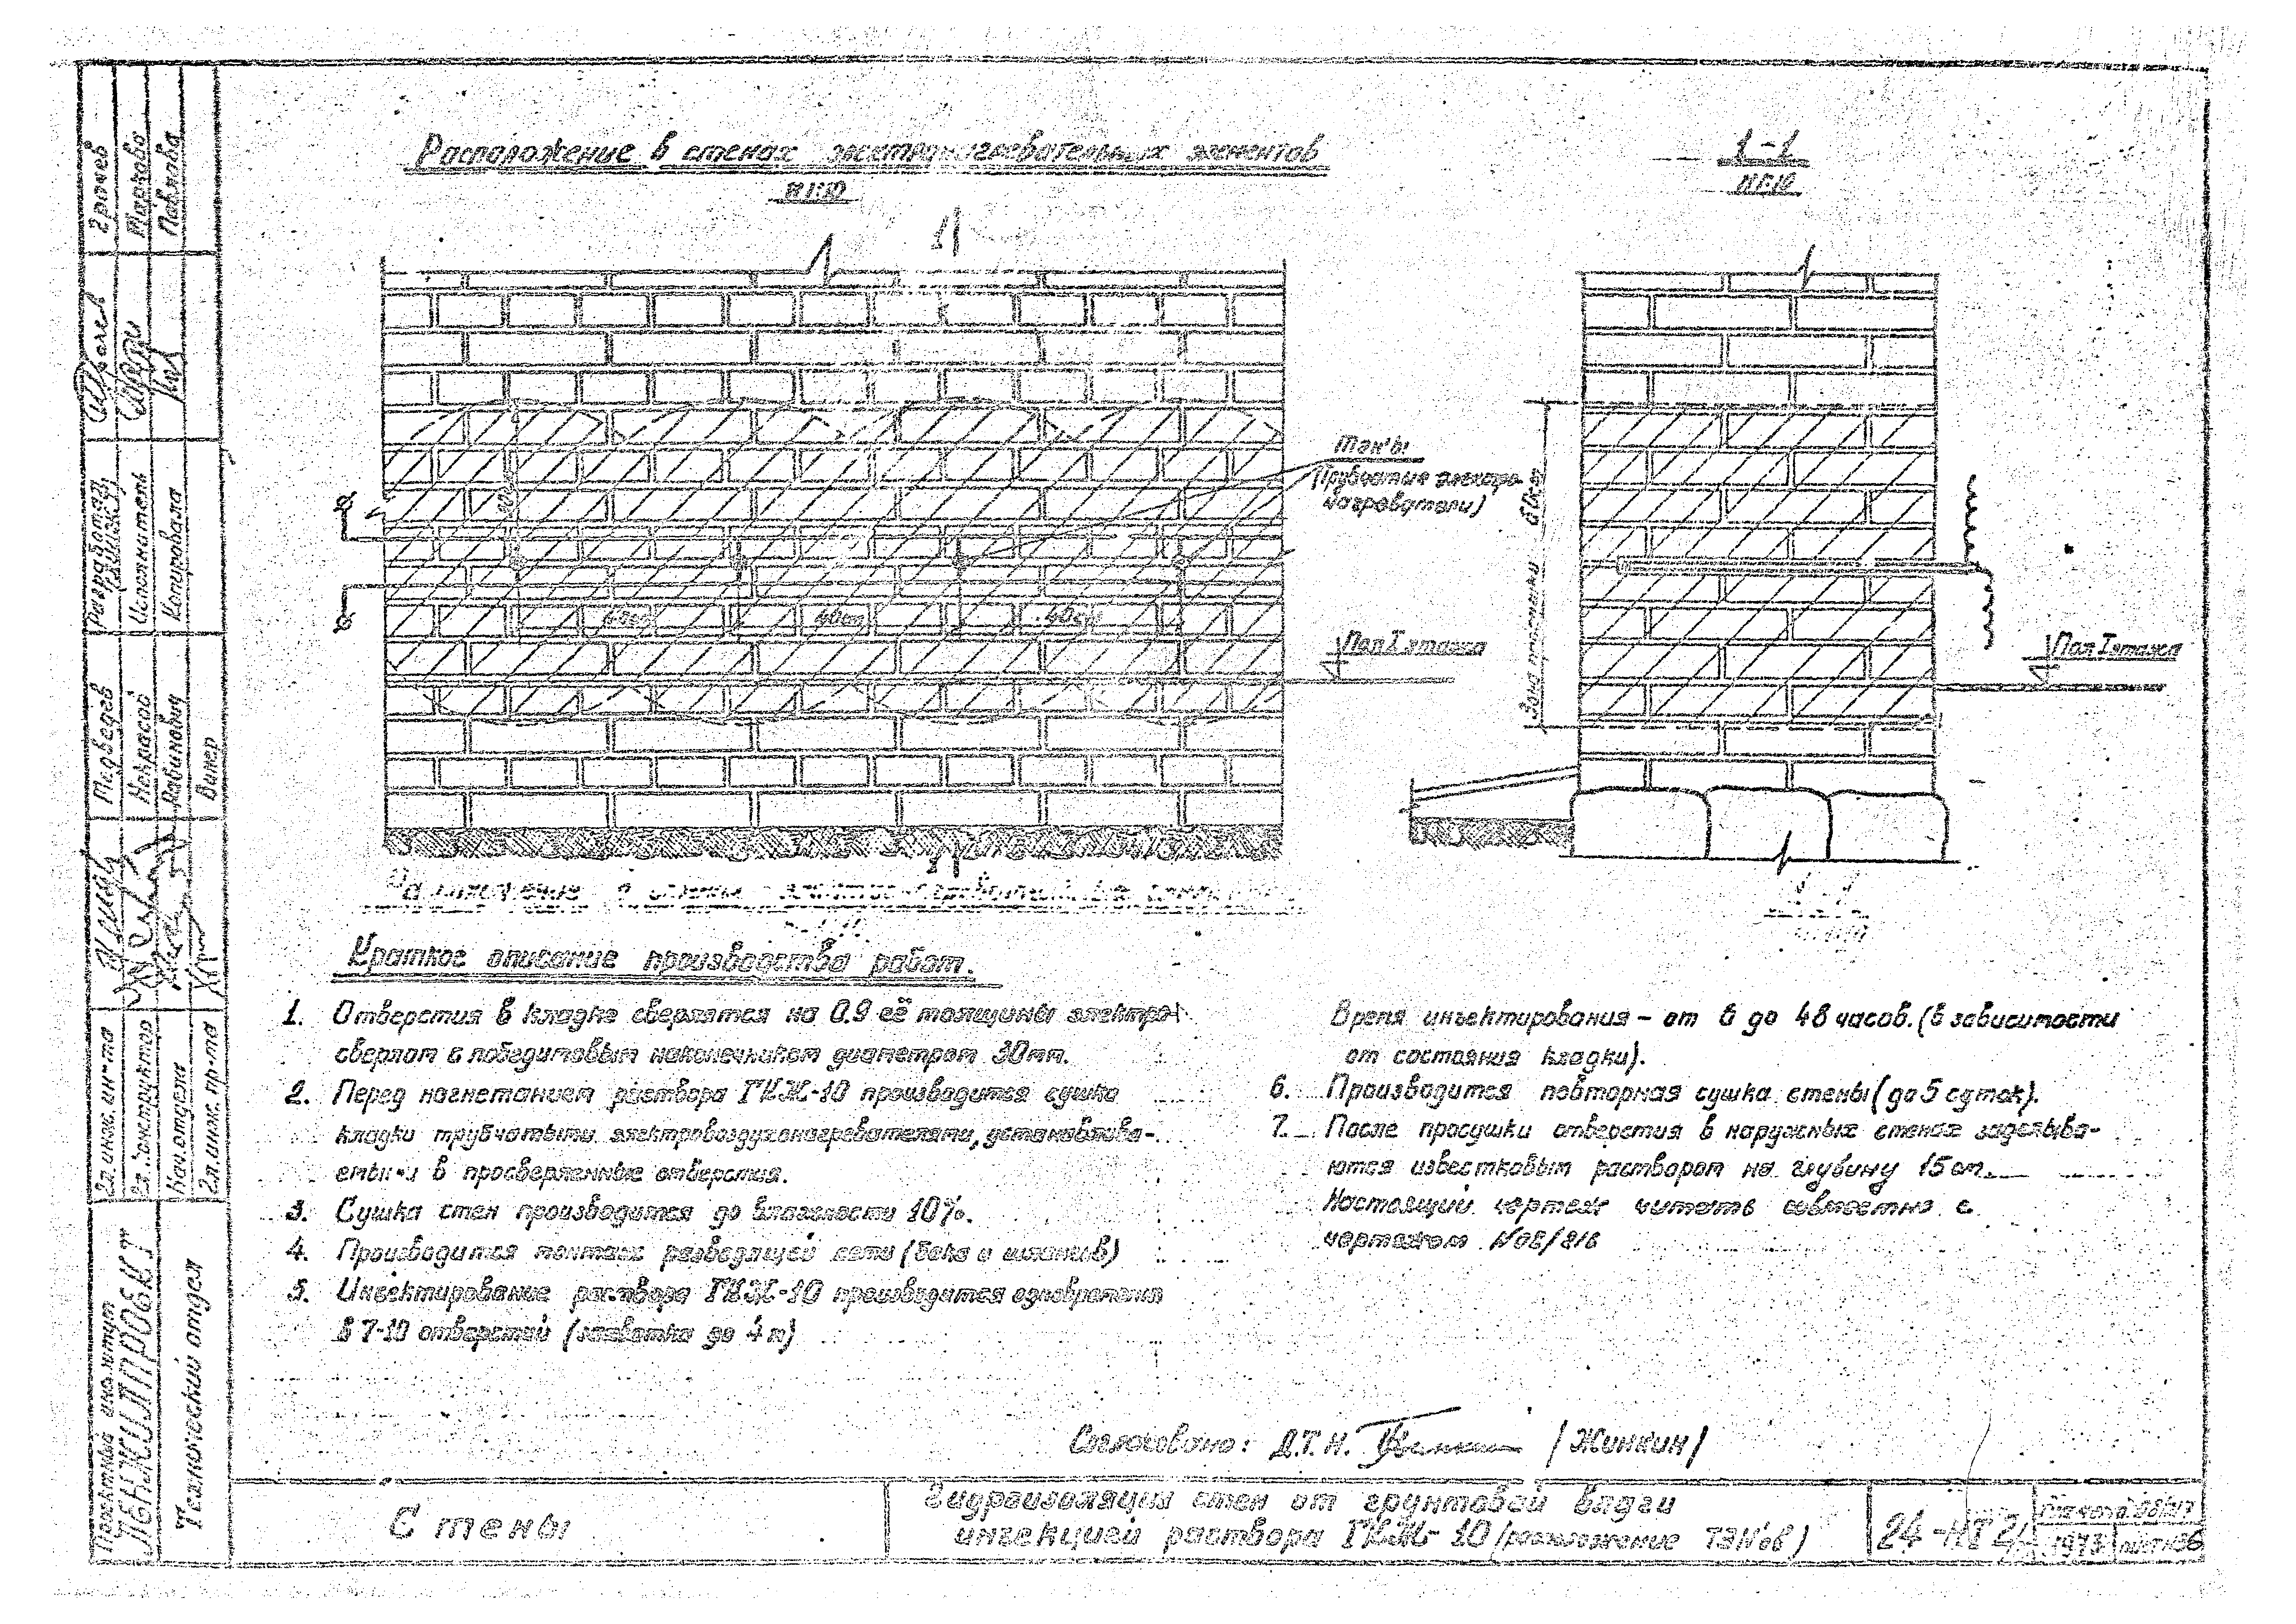 Расположение в стенах электронагревательных элементов
М 1:10
1-1
М 1:10
1
Тэн'ы
(Трубчатые электро-
нагреватели)
40см
40см
Пол I этажа
Зона пропитки
Пол I этажа
Краткое описание производства работ.
1. Отверстия в кладке сверлятся на 0.9 её толщины электро-
сверлом с победитовым наконечником диаметром 30мм.
2. Перед нагнетанием раствора ГКЖ-10 производится сушка
кладки трубчатыми электровоздухонагревателями, устанавлива-
емыми в просверленные отверстия.
3. Сушка стен производится до влажности 10%.
4. Производится монтаж разводящей сети (бака и шлангов)
5. Инъектирование раствора ГКЖ-10 производится одновременно
в 7-10 отверстий (захватка до 4м)
Время инъектирования - от 6 до 48 часов. (в зависимости
от состояния кладки).
6. Производится повторная сушка стены (до 5 суток).
7. После просушки отверстия в наружных стенах заделыва-
ются известковым раствором на глубину 15см.
Настоящий чертеж читать совместно с
чертежом
Согласовано: Д.Т.Н. /Жинкин/
Стены
Гидроизоляция стен от грунтовой влаги
инъекцией раствора ГКЖ-10 (расположение ТЭН'ов)
24-НТ
1973
Проектный институт
ЛЕНЖИЛПРОЕКТ
Технический отдел
Гл. инж. ин-та
Гл. конструктор
Нач. отдела
Гл. инж. пр-та
Медведев
Некрасов
Рабинович
Винер
Разработал
Исполнитель
Копировала
Грачев
Маркова
Павлова